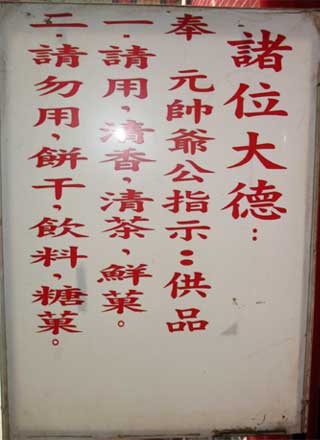 諸位大德：
奉 元帥爺公指示：供品
一．請用，清香，清茶，鮮菓。
二．請勿用，餅干，飲料，糖菓。